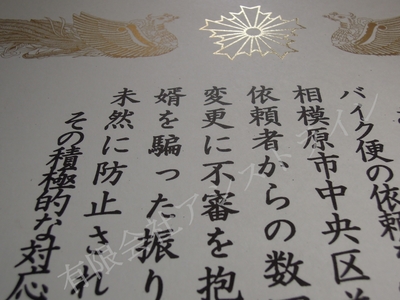 バイク便の依頼
相模原市中央区
依頼者からの数
変更に不審を抱
婿を騙った振り
未然に防止され
その積極的な対応
有限会社アシストライン